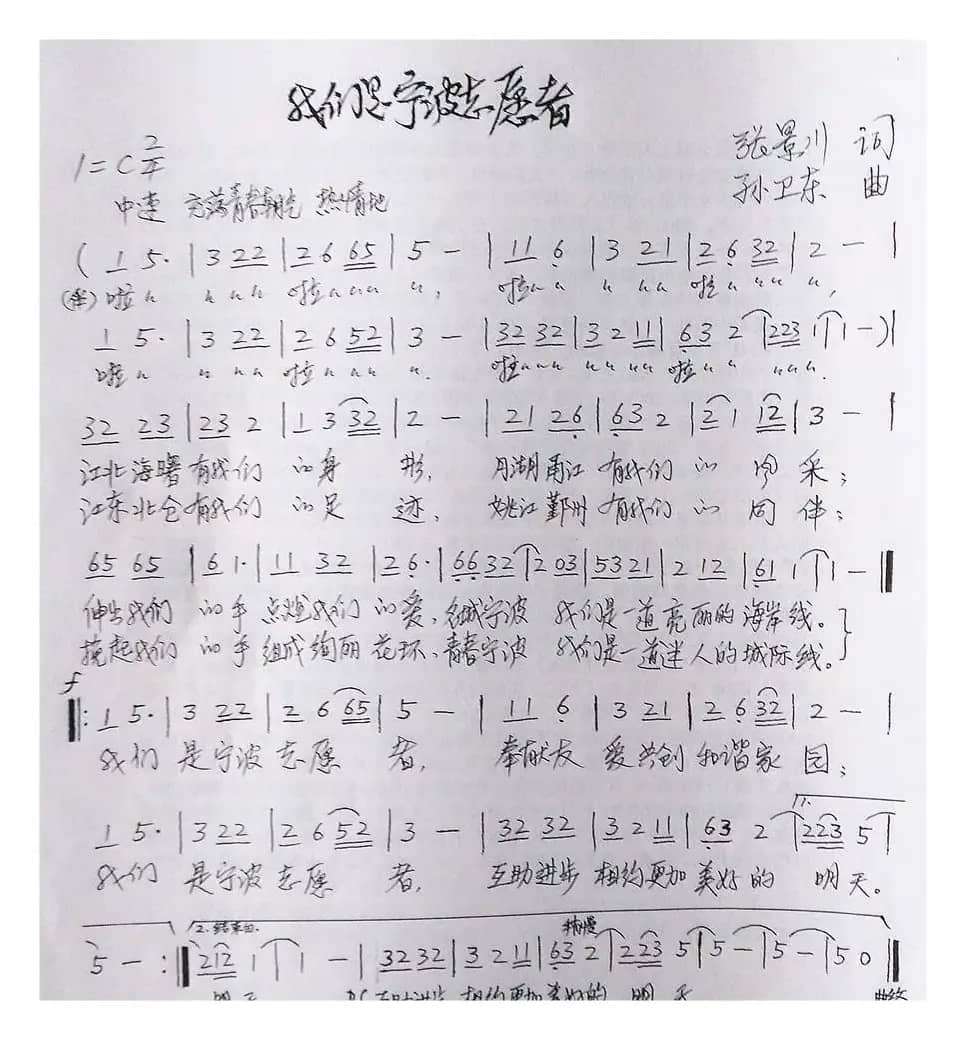 我们是宁波志愿者
1=C 2/4
张景川 词
中速 充满青春朝气 热情地
孙卫东 曲
( 1 5· | 3 22 | 2 6 65 | 5 — | 11 6 | 3 21 | 2 6 32 | 2 — |
(伴) 啦 〃 〃 〃 〃 啦 〃 〃 〃 〃, 啦 〃 〃 〃 〃 〃 啦 〃 〃 〃 〃,
1 5· | 3 22 | 2 6 52 | 3 — | 32 32 | 3 2 11 | 63 2 | 223 1 | 1 — ) |
啦 〃 〃 〃 〃 啦 〃 〃 〃 〃. 啦 〃 〃 〃 〃 〃 〃 〃 啦 〃 〃 〃 〃 〃.
32 23 | 23 2 | 1 3 32 | 2 — | 21 26 | 63 2 | 2 1 12 | 3 — |
江北海曙有我们 的身 形, 月湖甬江 有我们 的 风 采;
江东北仑有我们 的足 迹, 姚江鄞州 有我们 的 同 伴;
65 65 | 6 1· | 11 32 | 2 6· | 66 32 | 2 03 | 53 21 | 2 12 | 61 1 | 1 — ‖
伸出我们 的手 点燃我们 的爱, 名城宁波 我们是一道亮丽的海岸线。
挽起我们 的手 组成绚丽 花环、青春宁波 我们是一道迷人的城际线。
f
‖: 1 5· | 3 22 | 2 6 65 | 5 — | 11 6 | 3 21 | 2 6 32 | 2 — |
我们 是宁波 志愿 者, 奉献友 爱共创 和谐家 园;
1.
1 5· | 3 22 | 2 6 52 | 3 — | 32 32 | 3 2 11 | 63 2 | 223 5 |
我们 是宁波 志愿 者, 互助进步 相约更加 美好的 明天。
2. 结束句. 稍慢
5 — :‖ 212 1 | 1 — | 32 32 | 3 2 11 | 63 2 | 223 5 | 5 — | 5 — | 5 0 ‖
明天 互助进步 相约更加美好的 明 天